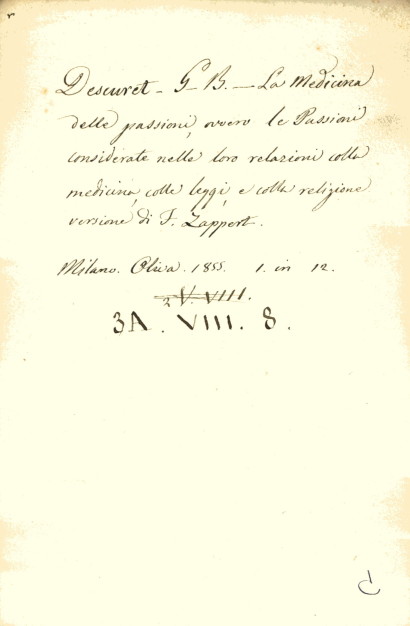 Descuret - G B. — La Medicina
delle passioni, ovvero le Passioni
considerate nelle loro relazioni colla
medicina, colle leggi, e colla religione
versione di F. Zappert.
Milano. Oliva. 1855. 1. in 12.
V. VIII.
3A. VIII. 8.